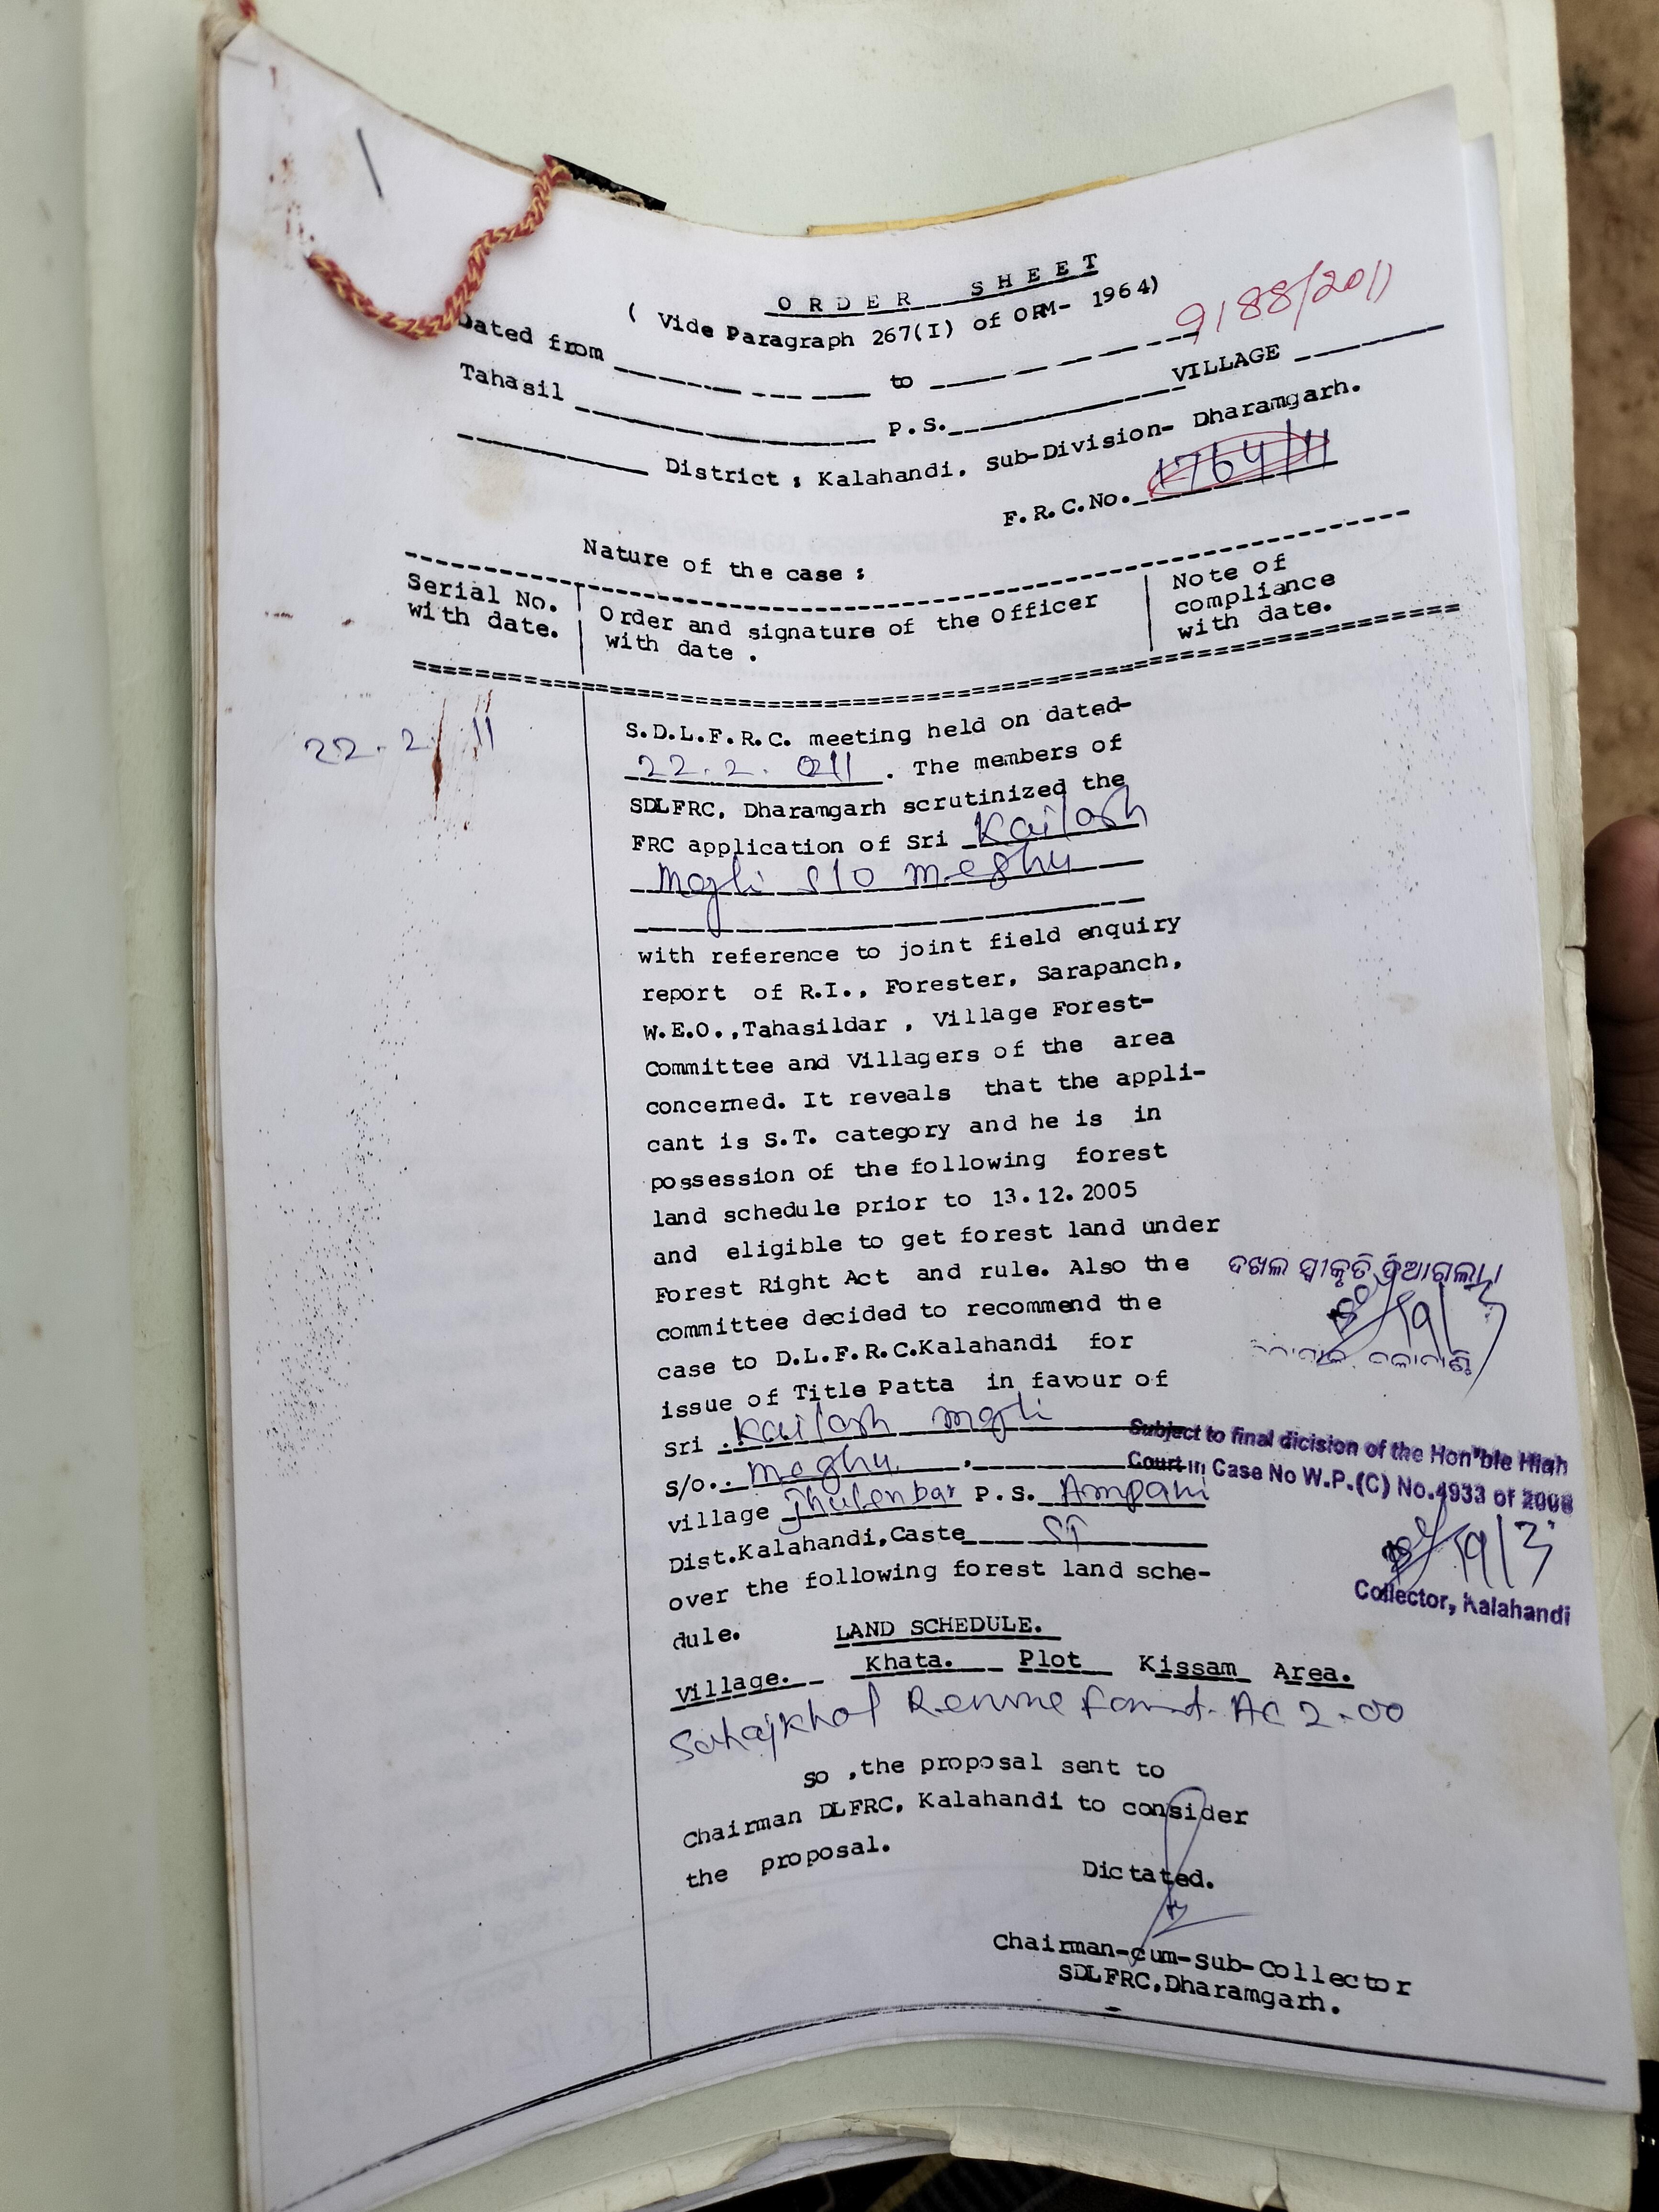 ORDER SHEET
( Vide Paragraph 267(I) of ORM- 1964)
9188/2011
Dated from to VILLAGE
Tahasil P.S.
District : Kalahandi. Sub-Division- Dharamgarh.
F.R.C.No. 1764/11
Nature of the case :
Serial No. with date.
Order and signature of the Officer with date .
Note of compliance with date.
22.2.11
S.D.L.F.R.C. meeting held on dated-
22.2.011 . The members of
SDLFRC, Dharamgarh scrutinized the
FRC application of Sri Kailash
majhi S/O meghu
with reference to joint field enquiry
report of R.I., Forester, Sarapanch,
W.E.O.,Tahasildar , Village Forest-
Committee and Villagers of the area
concerned. It reveals that the appli-
cant is S.T. category and he is in
possession of the following forest
land schedule prior to 13.12.2005
and eligible to get forest land under
Forest Right Act and rule. Also the
committee decided to recommend the
case to D.L.F.R.C.Kalahandi for
issue of Title Patta in favour of
Sri Kailash majhi
S/o. meghu
village P.S. Ampani
Dist.Kalahandi,Caste ST
over the following forest land sche-
dule.
ଦଖଲ ସ୍ୱୀକୃତି ଦିଆଗଲା
Subject to final dicision of the Hon'ble High
Court in Case No W.P.(C) No.4933 of 2008
Collector, Kalahandi
LAND SCHEDULE.
Village. Khata. Plot Kissam Area.
Sahajkhol AC 2.00
so ,the proposal sent to
Chairman DLFRC, Kalahandi to consider
the proposal.
Dictated.
Chairman-cum-Sub-Collector
SDLFRC,Dharamgarh.